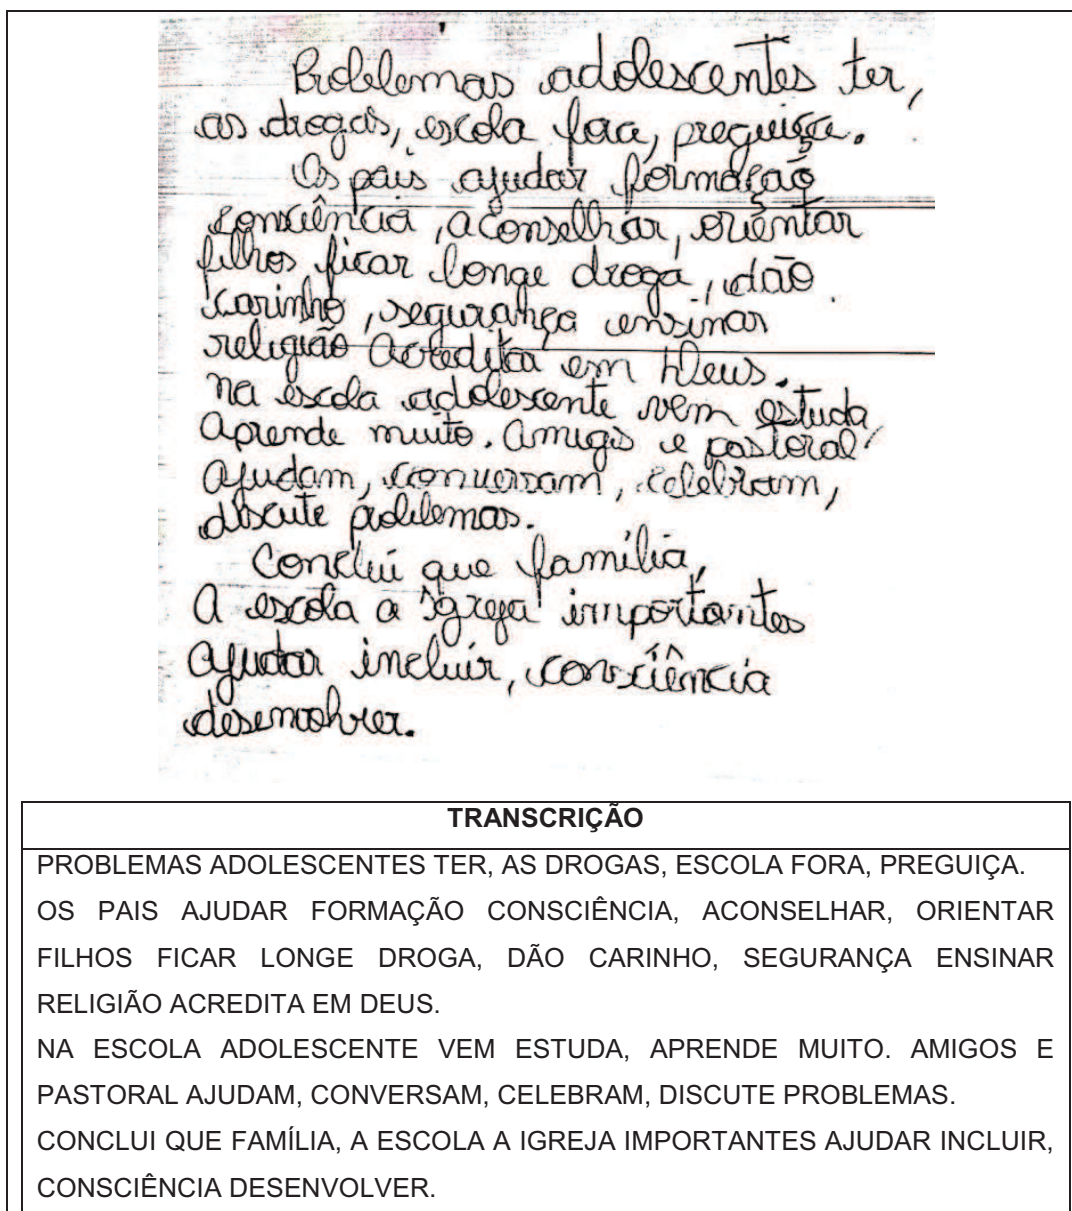 Problemas adolescentes ter,
as drogas, escola fora, preguiça.
Os pais ajudar formação
consciência, aconselhar, orientar
filhos ficar longe droga, dão
carinho, segurança ensinar
religião acredita em Deus.
na escola adolescente vem estuda,
aprende muito. amigos e pastoral
ajudam, conversam, celebram,
discute problemas.
Concluí que família,
A escola a igreja importantes
ajudar incluir, consciência
desenvolver.
TRANSCRIÇÃO
PROBLEMAS ADOLESCENTES TER, AS DROGAS, ESCOLA FORA, PREGUIÇA.
OS PAIS AJUDAR FORMAÇÃO CONSCIÊNCIA, ACONSELHAR, ORIENTAR
FILHOS FICAR LONGE DROGA, DÃO CARINHO, SEGURANÇA ENSINAR
RELIGIÃO ACREDITA EM DEUS.
NA ESCOLA ADOLESCENTE VEM ESTUDA, APRENDE MUITO. AMIGOS E
PASTORAL AJUDAM, CONVERSAM, CELEBRAM, DISCUTE PROBLEMAS.
CONCLUI QUE FAMÍLIA, A ESCOLA A IGREJA IMPORTANTES AJUDAR INCLUIR,
CONSCIÊNCIA DESENVOLVER.